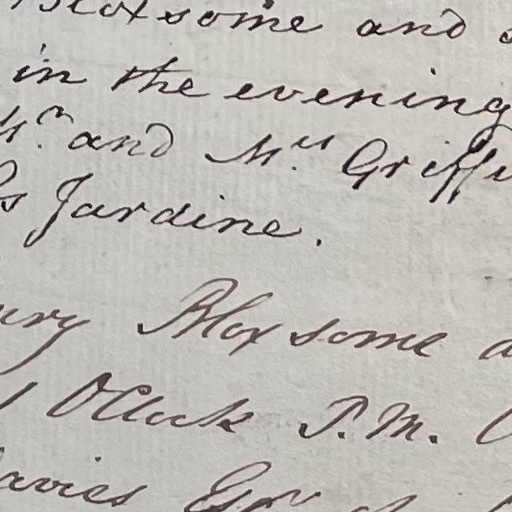 Bloxsome and
in the evening
Mr. and Mrs Griff
Jardine.
Bloxsome
O'Clock P.M.
avies Esqr